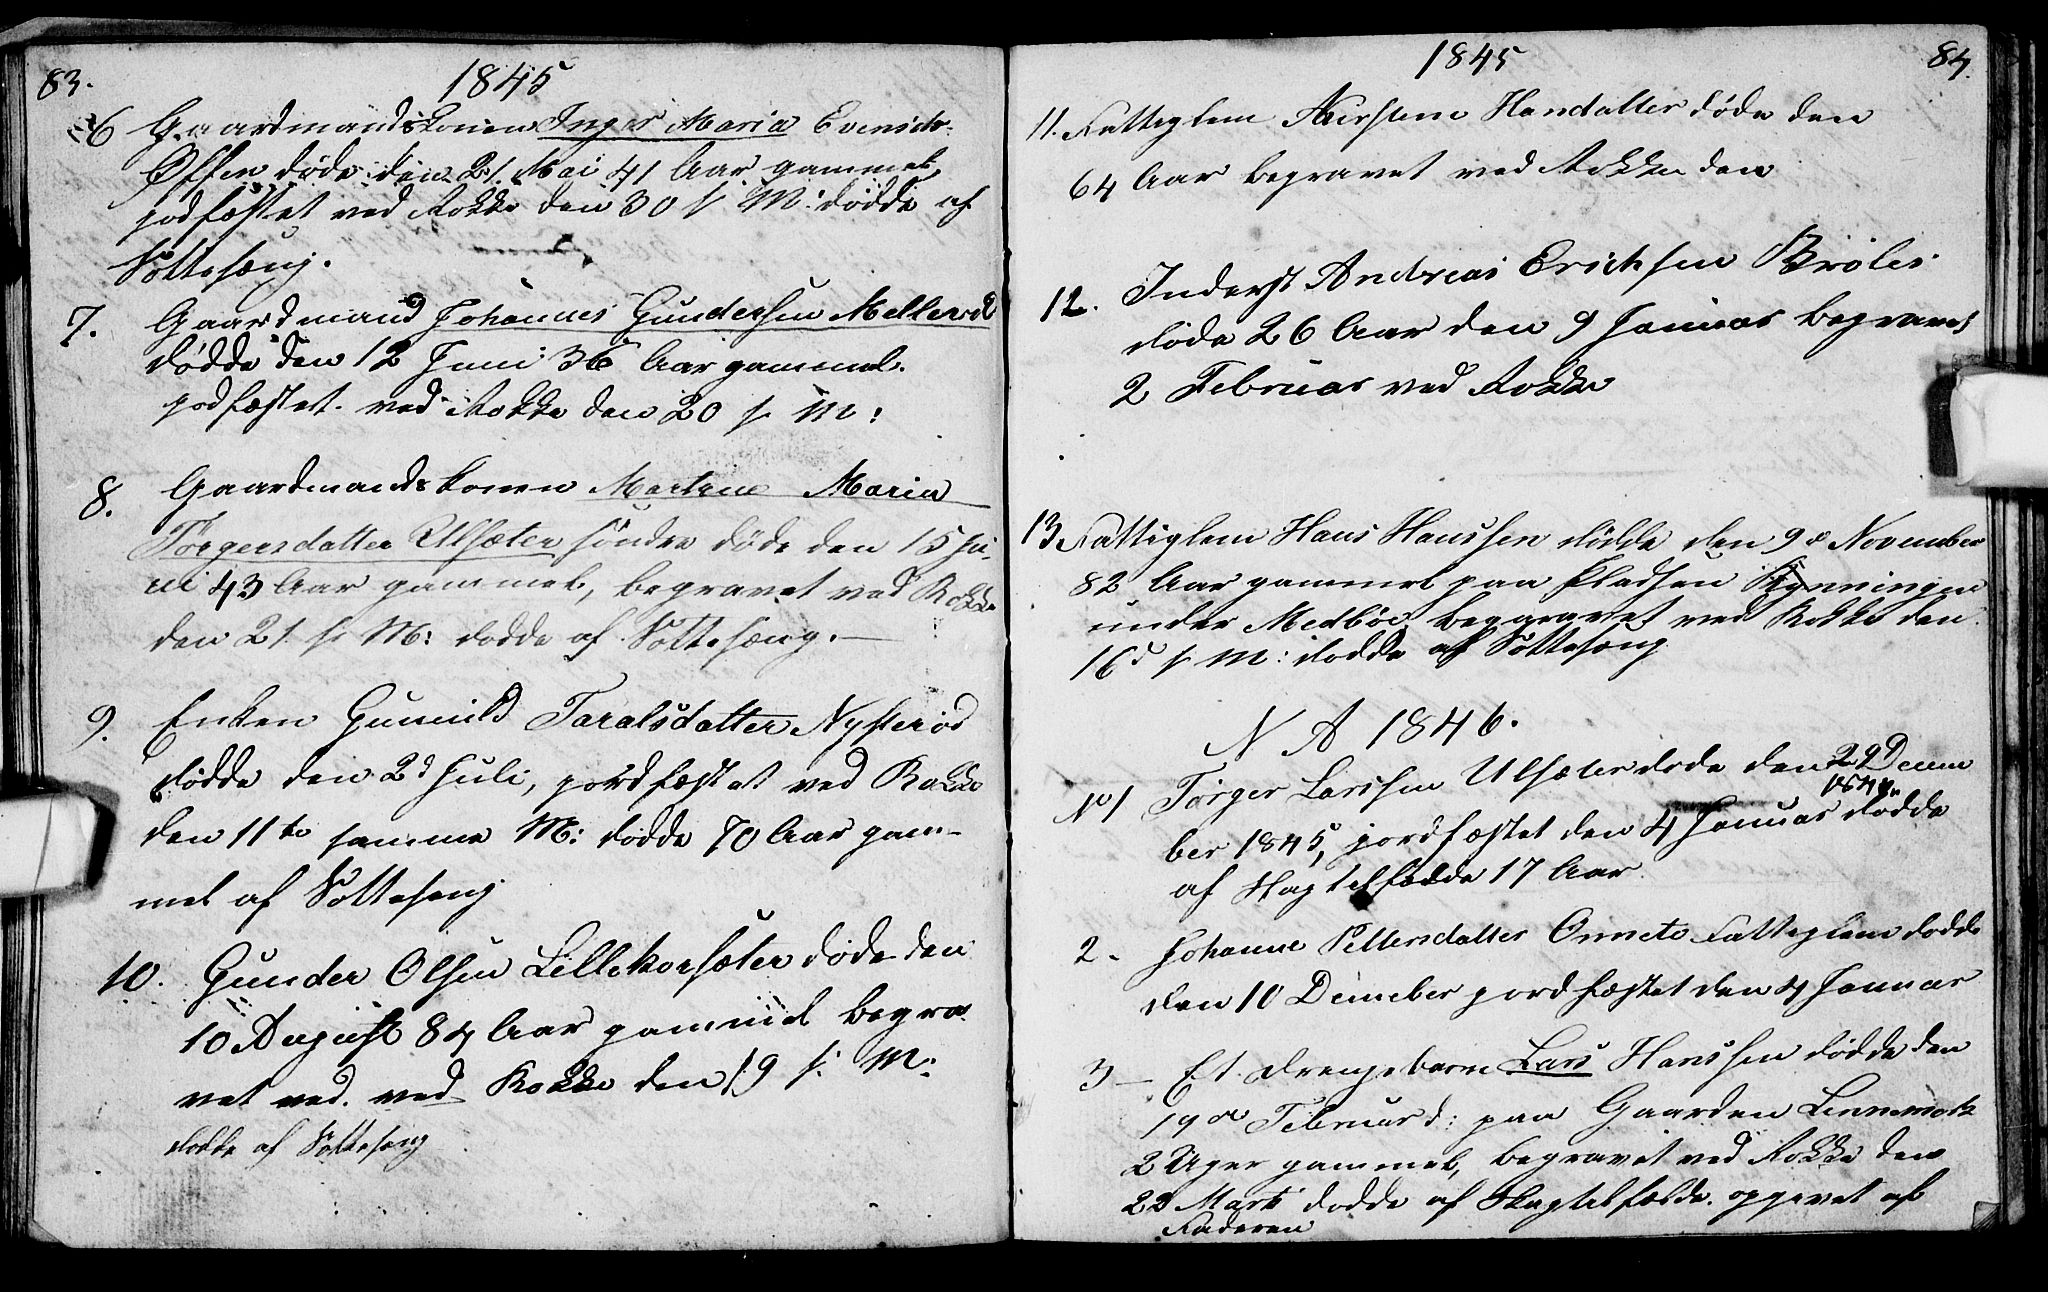 83.
1845
6 Gaardmandskonen Inger Maria Evensdr.
døde den 21 Mai 41 Aar gammel,
jordfæstet ved Rokke den 30 s. M: dødde af
Sottesæng.
7. Gaardmand Johannes Gundersen Mellerød
dødde den 12 Juni 36 Aar gammel.
jordfæstet ved Rokke den 20 s. M:
8. Gaardmandskonen Martine Maria
Torgersdatter Ulsæter søndre døde den 15 Ju-
ni 43 Aar gammel, begravet ved Rokke
den 21 s. M: dødde af Sottesæng.
9. Enken Gunnild Taralsdatter Nysterød
dødde den 2d Juli, jordfæstet ved Rokke
den 11te samme M: dødde 70 Aar gam-
mel af Sotteseng
10. Gunder Olsen Lillekorsæter døde den
10 August 84 Aar gammel begra-
vet ved. ved Rokke den 19 s. M:
dødde af Sotteseng
1845
84.
11. Fattiglem Kirstine Hansdatter døde den
64 Aar begravet ved Rokke den
12. Inderst Andreas Erichsen Brøler
døde 26 Aar den 9 Januar begravet
2 Februar ved Rokke
13 Fattiglem Hans Hanssen dødde den 9de November
82 Aar gammel paa Pladsen Rønningen
under Medbøe begravet ved Rokke den
16d s. M: dødde af Sotteseng
N A 1846.
No 1 Torger Larssen Ulsæter døde den 22 Decem
1846
ber 1845, jordfæstet den 4 Januar dødde
af Slagtilfælde 17 Aar.
2. Johanne Pettersdatter Fattiglem dødde
den 10 Decmeber jordfæstet den 4 Januar
3 — Et drengebarn Lars Hanssen dødde den
19de Februar d: paa Gaarden Linnemark
2 Uger gammel, begravet ved Rokke den
22 Marts dødde af Slagtilfælde. opgivet af
Faderen